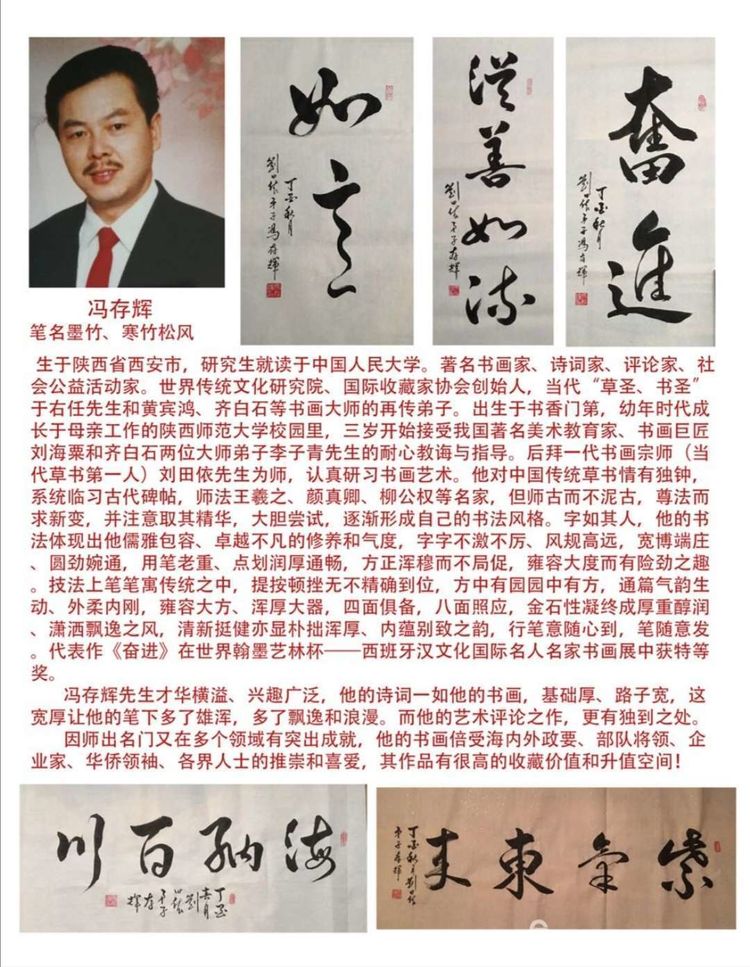 如意
丁酉秋月
劉田依弟子馮存輝
從善如流
劉田依弟子存輝
奮進
丁酉秋月
劉田依弟子馮存輝
冯存辉
笔名墨竹、寒竹松风
生于陕西省西安市，研究生就读于中国人民大学。著名书画家、诗词家、评论家、社
会公益活动家。世界传统文化研究院、国际收藏家协会创始人，当代“草圣、书圣”
于右任先生和黄宾鸿、齐白石等书画大师的再传弟子。出生于书香门第，幼年时代成
长于母亲工作的陕西师范大学校园里，三岁开始接受我国著名美术教育家、书画巨匠
刘海粟和齐白石两位大师弟子李子青先生的耐心教诲与指导。后拜一代书画宗师（当
代草书第一人）刘田依先生为师，认真研习书画艺术。他对中国传统草书情有独钟，
系统临习古代碑帖，师法王羲之、颜真卿、柳公权等名家，但师古而不泥古，尊法而
求新变，并注意取其精华，大胆尝试，逐渐形成自己的书法风格。字如其人，他的书
法体现出他儒雅包容、卓越不凡的修养和气度，字字不激不厉、风规高远，宽博端庄
、圆劲婉通，用笔老重、点划润厚通畅，方正浑穆而不局促，雍容大度而有险劲之趣
。技法上笔笔寓传统之中，提按顿挫无不精确到位，方中有园园中有方，通篇气韵生
动、外柔内刚，雍容大方、浑厚大器，四面俱备，八面照应，金石性凝终成厚重醇润
、潇洒飘逸之风，清新挺健亦显朴拙浑厚、内蕴别致之韵，行笔意随心到，笔随意发
。代表作《奋进》在世界翰墨艺林杯——西班牙汉文化国际名人名家书画展中获特等
奖。
冯存辉先生才华横溢、兴趣广泛，他的诗词一如他的书画，基础厚、路子宽，这
宽厚让他的笔下多了雄浑，多了飘逸和浪漫。而他的艺术评论之作，更有独到之处。
因师出名门又在多个领域有突出成就，他的书画倍受海内外政要、部队将领、企
业家、华侨领袖、各界人士的推崇和喜爱，其作品有很高的收藏价值和升值空间！
海納百川
紫氣東来